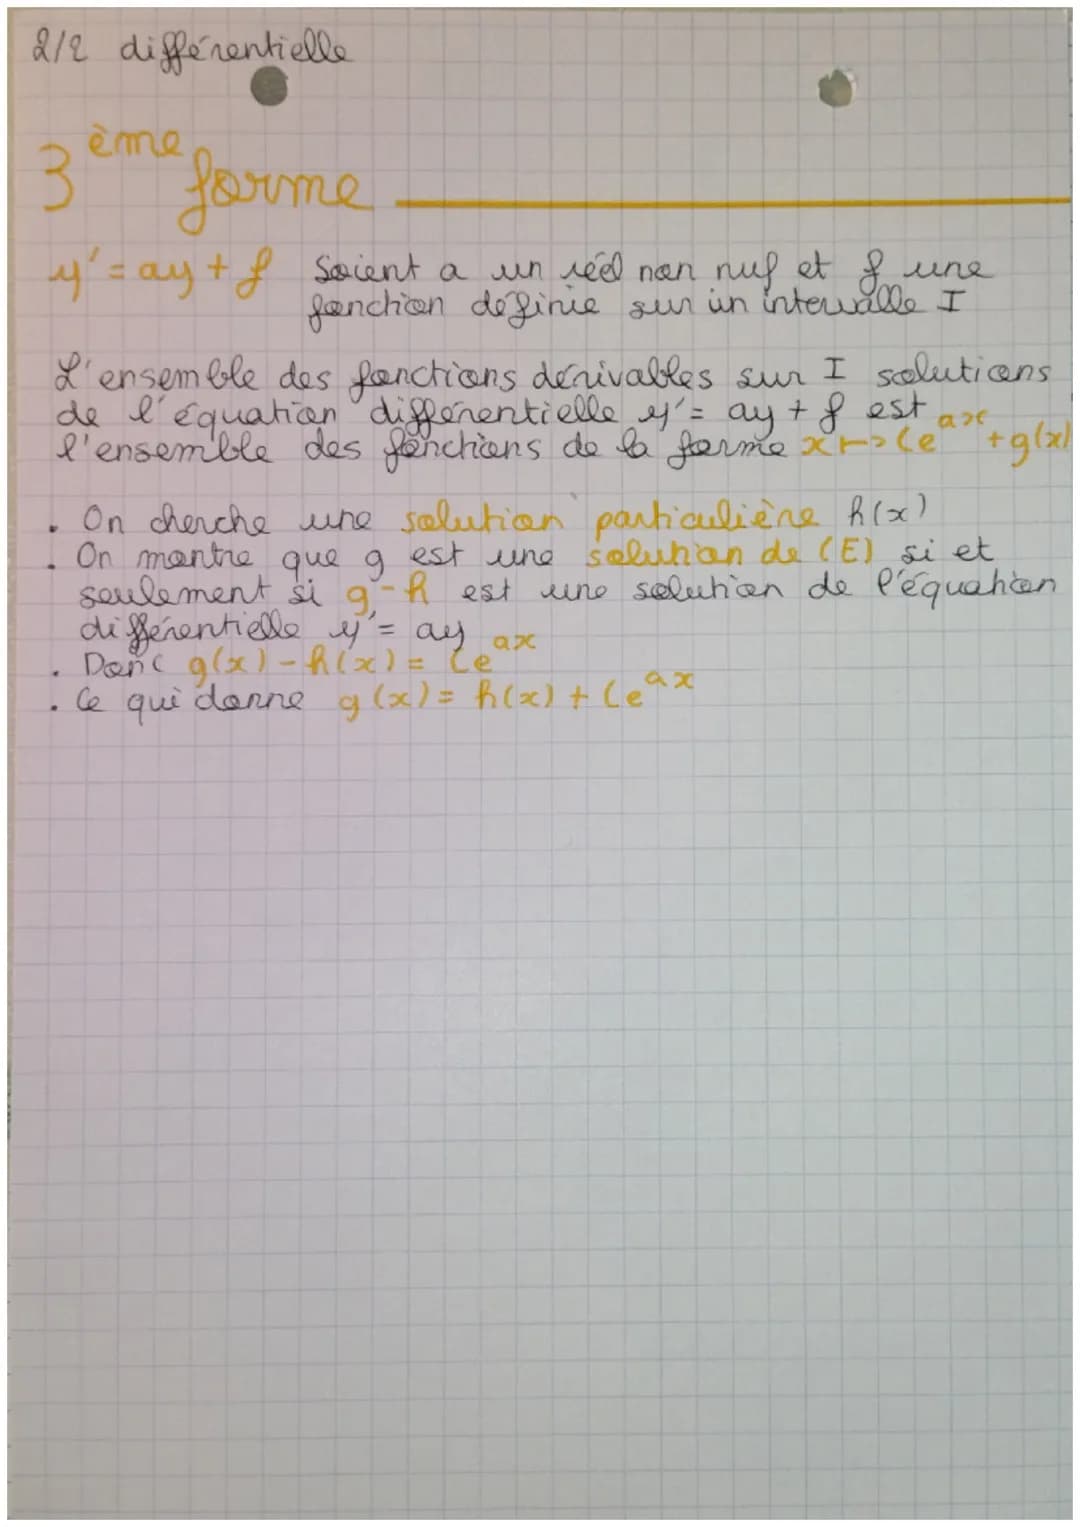 2/2 différentielle
3ème forme
y' = ay + f Soient a un réel non nul et f une
fonction définie sur un intervalle I
L'ensemble des fonctions dérivables sur I solutions
de l'équation différentielle y' = ay + f est
l'ensemble des fonctions de la forme x ↦ Ce^ax + g(x)
• On cherche une solution particulière h(x)
• On montre que g est une solution de (E) si et
seulement si g-h est une solution de l'équation
différentielle y' = ay
• Donc g(x) - h(x) = Ce^ax
• Ce qui donne g(x) = h(x) + Ce^ax